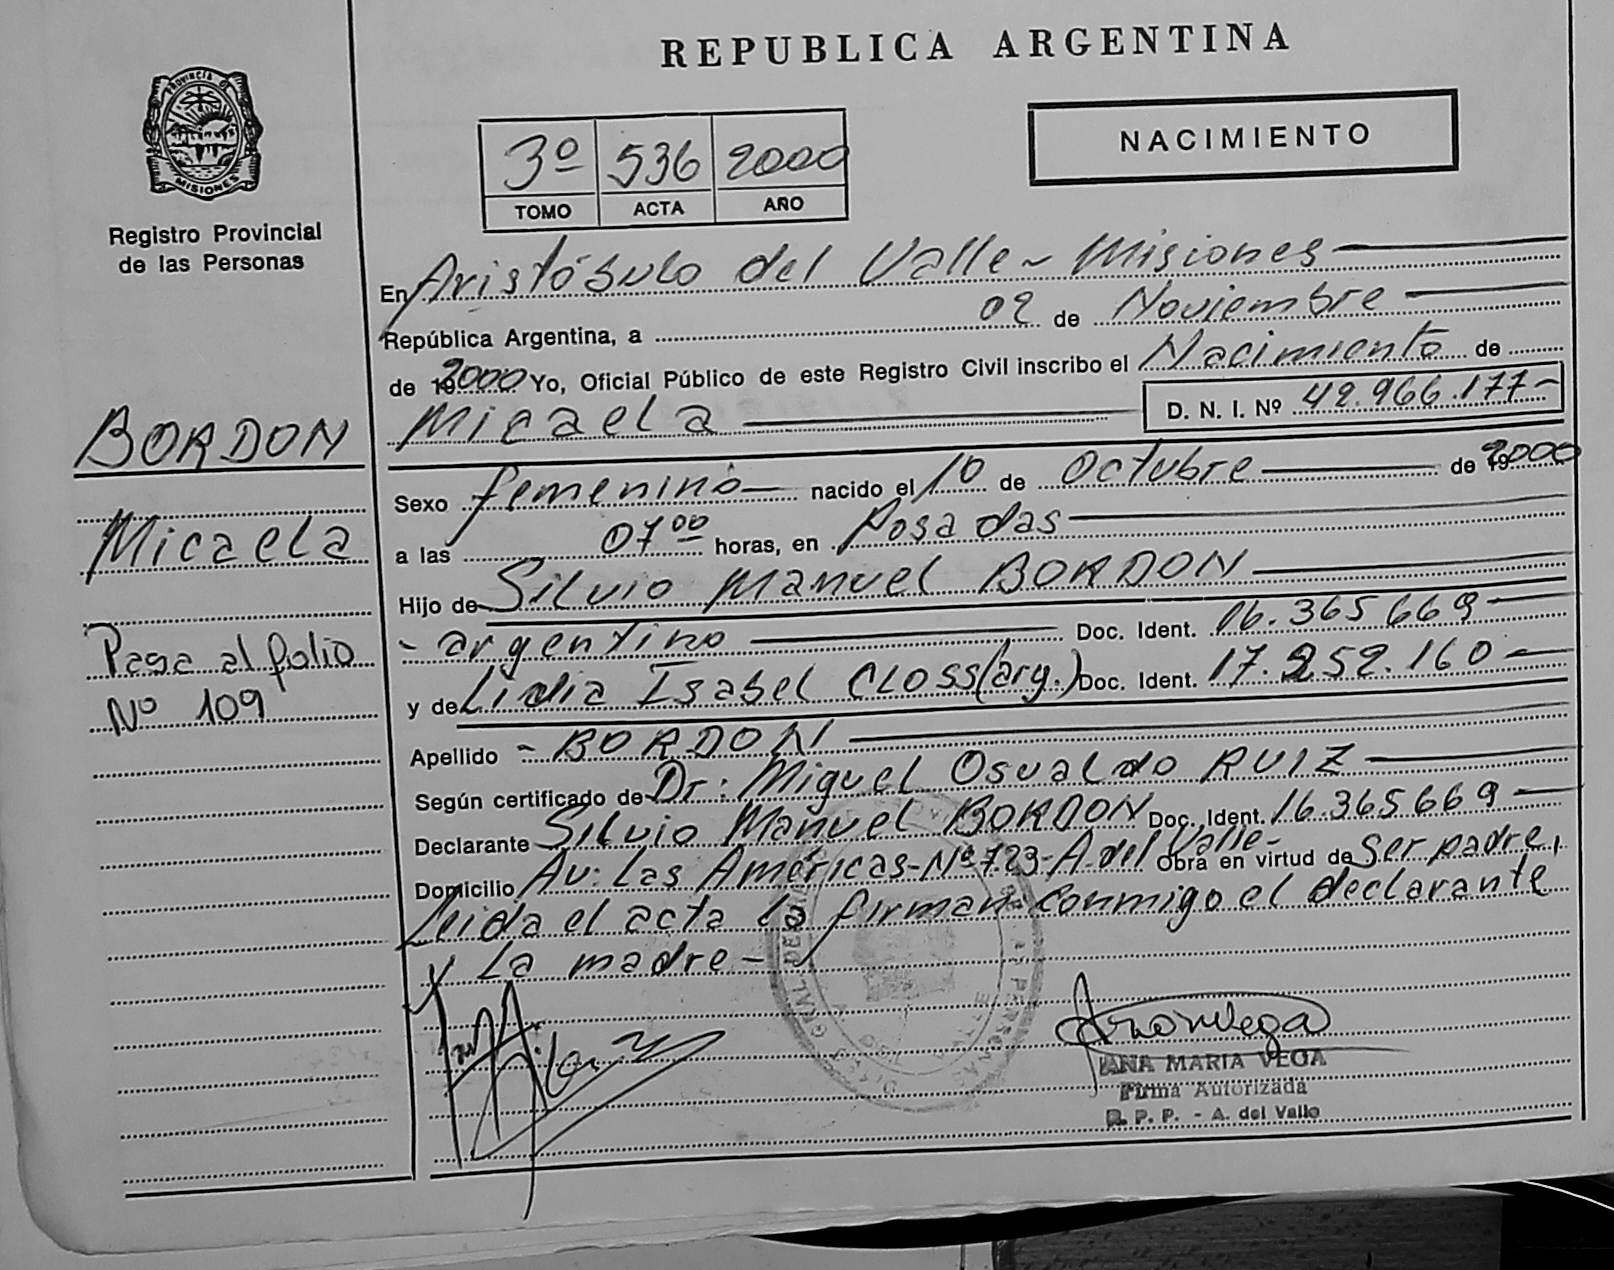 REPUBLICA ARGENTINA
PROVINCIA DE
MISIONES
Registro Provincial
de las Personas
3º 536 2000
TOMO ACTA AÑO
NACIMIENTO
En Aristóbulo del Valle - Misiones
República Argentina, a 02 de Noviembre
de 2000 Yo, Oficial Público de este Registro Civil inscribo el Nacimiento de
Micaela D. N. I. Nº 42.966.177-
BORDON
Micaela
Pasa al folio
Nº 109
Sexo femenino nacido el 10 de Octubre de 2000
a las 07 00 horas, en Posadas
Hijo de Silvio Manuel BORDON
- argentino Doc. Ident. 16.365669
y de Lidia Isabel CLOSS (arg.) Doc. Ident. 17.252.160-
Apellido - BORDON
Según certificado de Dr: Miguel Osvaldo RUIZ
Declarante Silvio Manuel BORDON Doc. Ident. 16.365669
Domicilio Av: Las Américas-Nº 723-A. del Valle- Obra en virtud de Ser padre,
Leida el acta la firman conmigo el declarante
y La madre-
ANA MARIA VEGA
Firma Autorizada
R. P. P. - A. del Valle